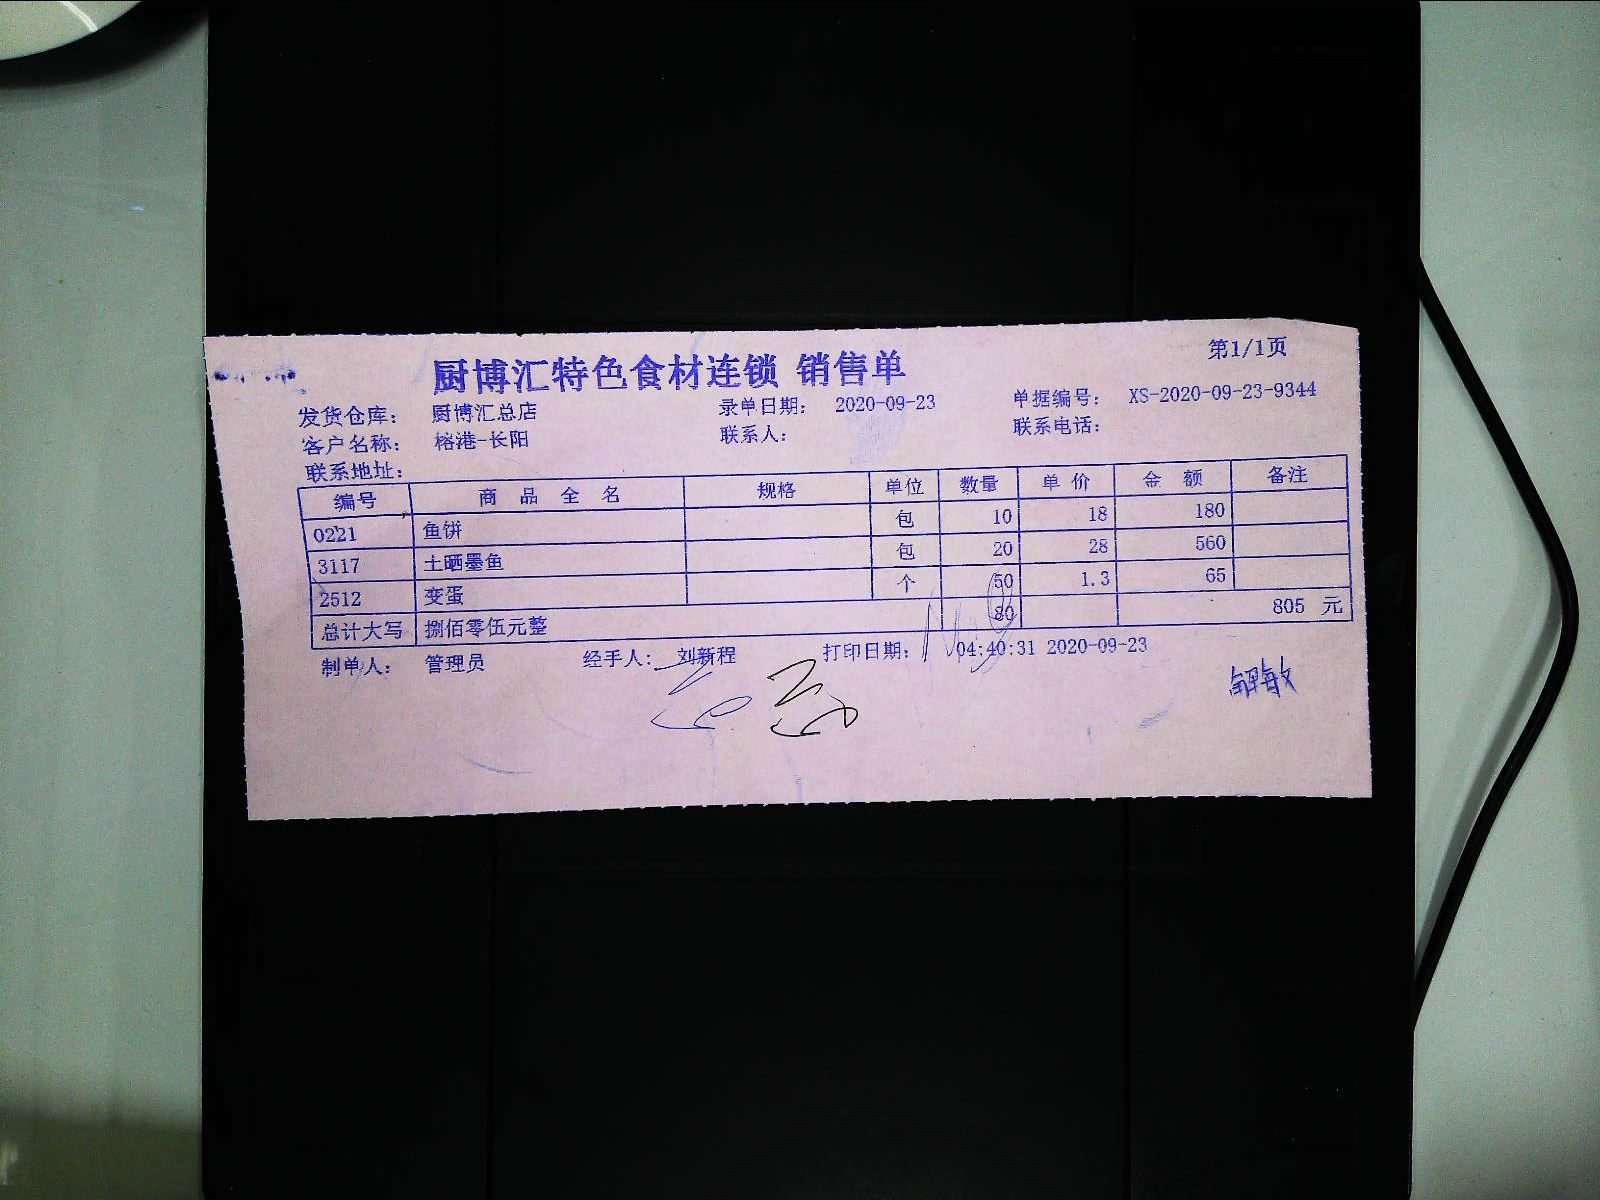 第1/1页
厨博汇特色食材连锁 销售单
发货仓库： 厨博汇总店 录单日期： 2020-09-23 单据编号： XS-2020-09-23-9344
客户名称： 榕港-长阳 联系人： 联系电话：
联系地址：
编号 商品全名 规格 单位 数量 单价 金额 备注
0221 鱼饼 包 10 18 180
3117 土晒墨鱼 包 20 28 560
2512 变蛋 个 50 1.3 65
总计大写 捌佰零伍元整 80 805 元
制单人： 管理员 经手人： 刘新程 打印日期： 04:40:31 2020-09-23